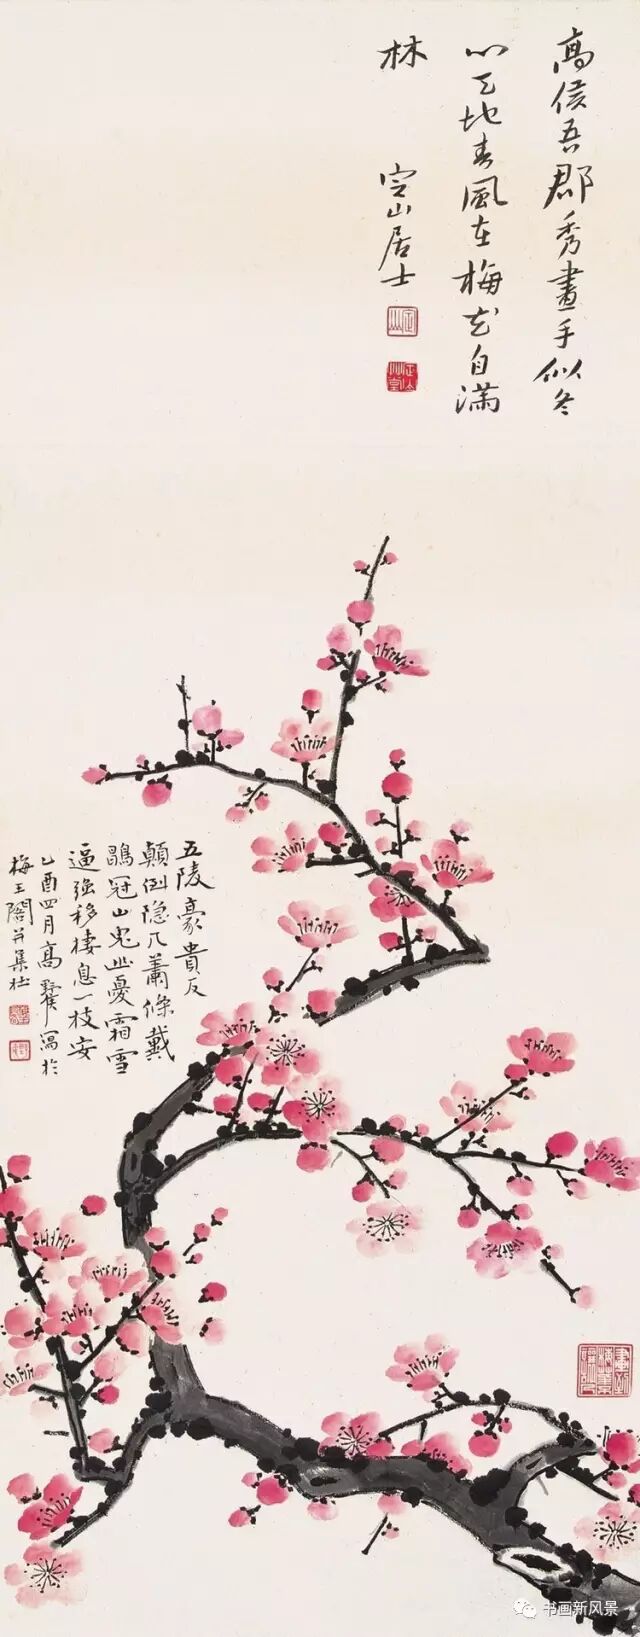 高侯吾郡秀畫手似冬
心天地春風在梅花自滿
林 定山居士
定山
五陵豪貴反
顛倒隐几蕭條戴
鶡冠山鬼幽憂霜雪
逼強移棲息一枝安
乙酉四月高野侯寫於
梅王閣并集杜
畫到梅華不讓人
书画新风景